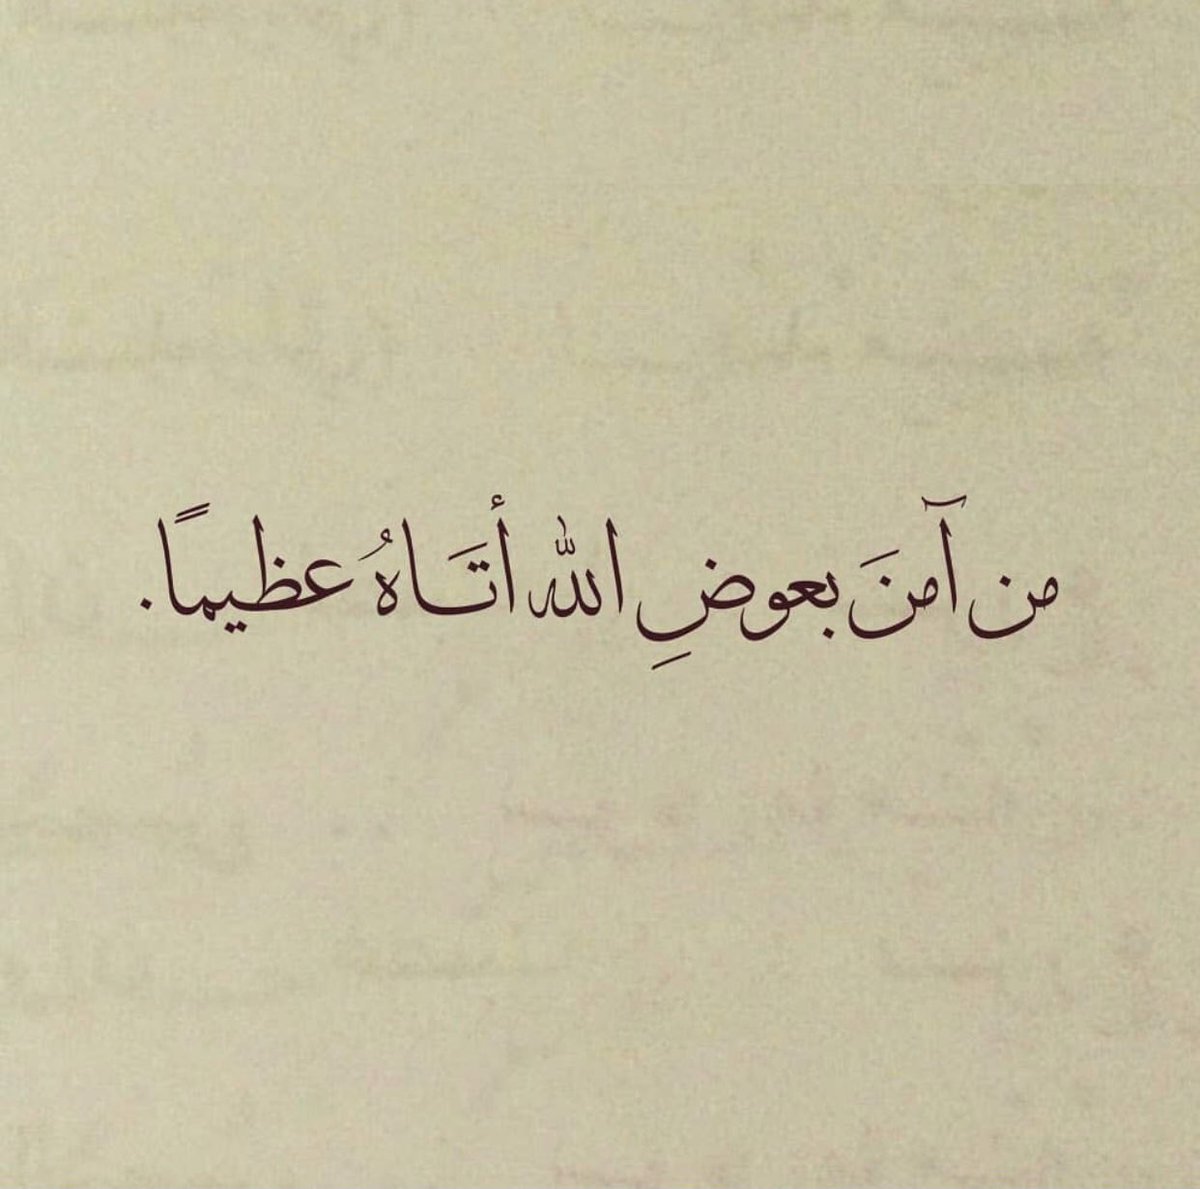 من آمنَ بعوضِ الله أتَاهُ عظيمًا.